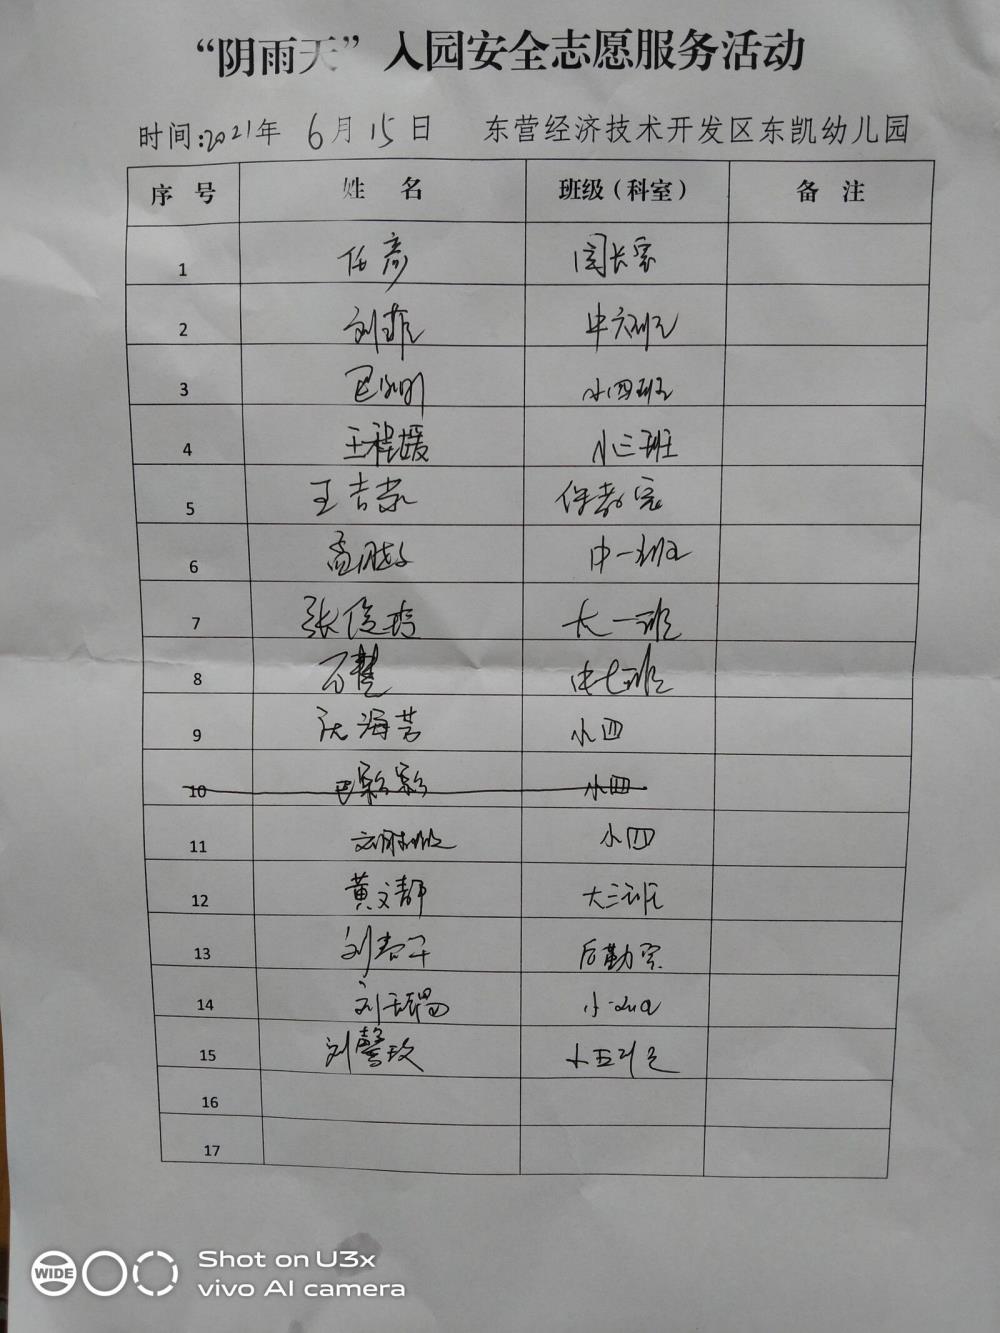 “阴雨天”入园安全志愿服务活动
时间:2021年 6月15日 东营经济技术开发区东凯幼儿园
序号 姓名 班级（科室） 备注
1 任彦 园长室
2 刘菲 中六班
3 小四班
4 王程媛 小三班
5 王吉荣 保教室
6 中一班
7 张俊玲 大一班
8 万慧 中七班
9 沈海苦 小四
10 巴彩彩 小四
11 小四
12 黄文静 大三班
13 刘春子 后勤室
14 刘
15 刘馨玫 小五班
16
17
WIDE
Shot on U3x
vivo AI camera